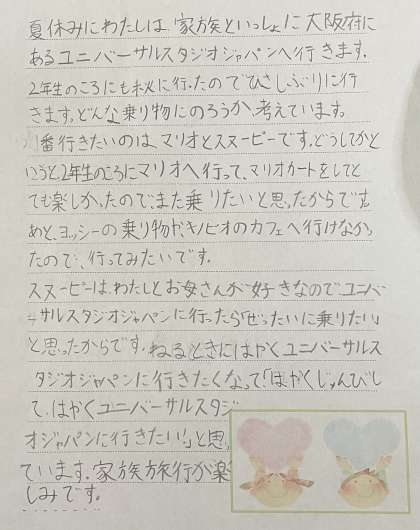 夏休みにわたしは、家族といっしょに大阪府に
あるユニバーサルスタジオジャパンへ行きます。
2年生のころにも秋に行ったのでひさしぶりに行
きます。どんな乗り物にのろうか、考えています。
1番行きたいのは、マリオとスヌーピーです。どうしてかと
いうと、2年生のころにマリオへ行って、マリオカートをしてと
ても楽しかったので、また乗りたいと思ったからです。
あと、ヨッシーの乗り物やキノピオのカフェへ行けなかっ
たので、行ってみたいです。
スヌーピーは、わたしとお母さんが好きなので、ユニバ
ーサルスタジオジャパンに行ったら「ぜったいに乗りたい」
と思ったからです。ねるときにはやくユニバーサルス
タジオジャパンに行きたくなって、「はやくじゅんびし
て、はやくユニバーサルスタジ
オジャパンに行きたい!」と思っ
ています。家族旅行が楽
しみです。